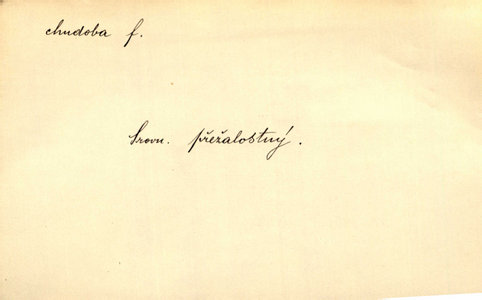 chudoba f.
Srovn. přežalostný.